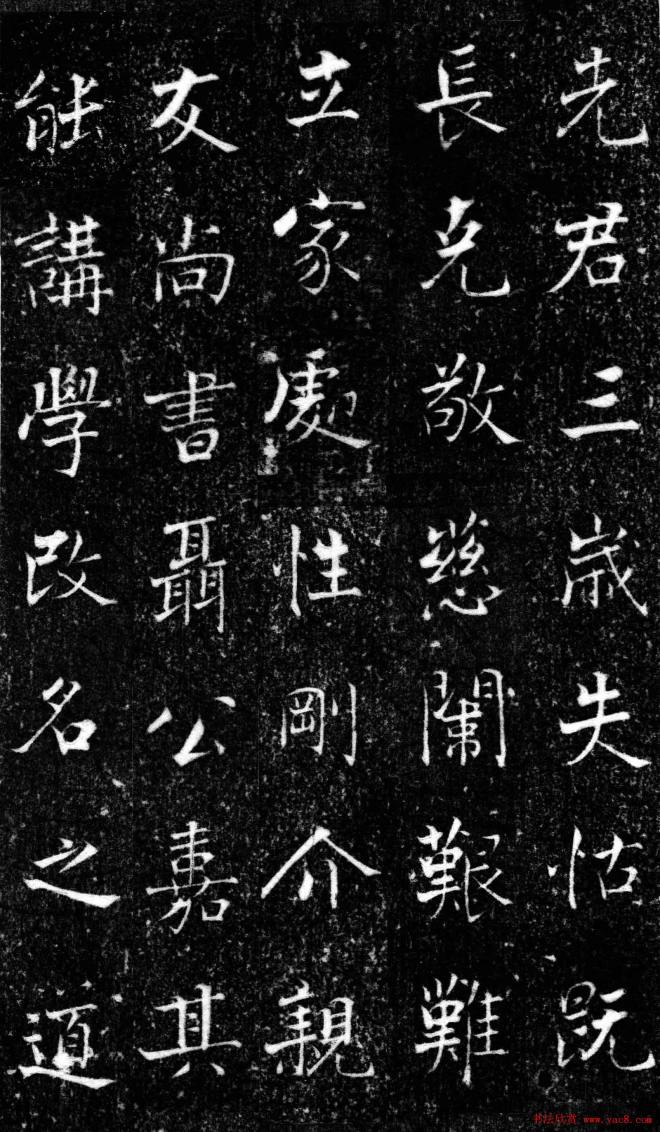 先君三歲失怙既
長克敬慈闈艱難
立家處性剛介親
友尚書聶公嘉其
能講學改名之道
书法欣赏 www.yac8.com